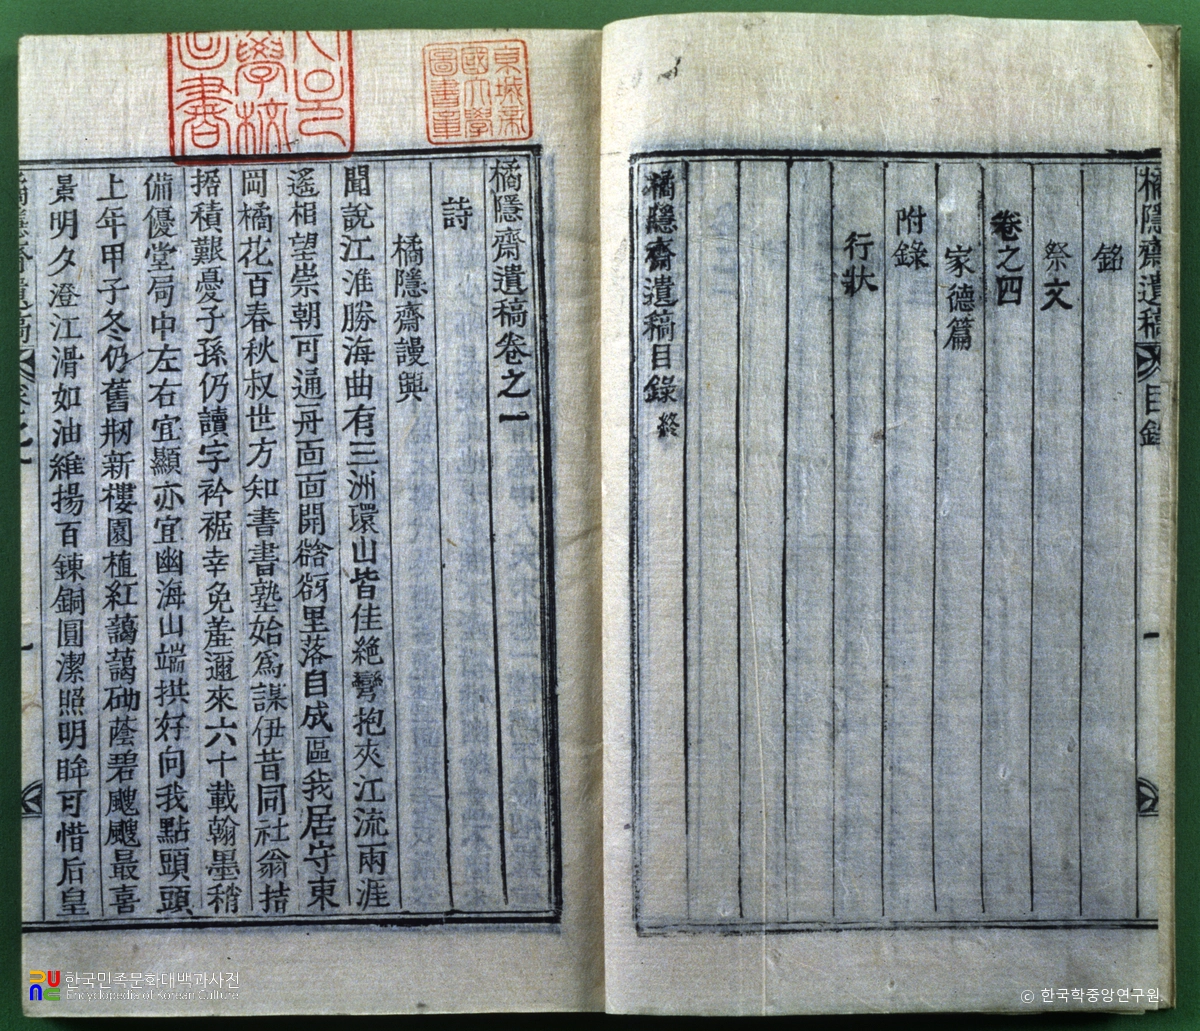 橘隱齋遺稿 目錄 一
銘
祭文
卷之四
家德篇
附錄
行狀
橘隱齋遺稿目錄 終
京城帝國大學圖書章
學校
圖書
橘隱齋遺稿卷之一
詩
橘隱齋謾興
聞說江淮勝海曲有三洲環山皆佳絶彎抱夾江流兩涯
遙相望崇朝可通舟面面開谽谺里落自成區我居守東
岡橘花百春秋叔世方知書書塾始爲謀伊昔同社翁拮
搯積艱憂子孫仍讀字衿裾幸免羞邇來六十載翰墨稍
備優堂局中左右宜顯亦宜幽海山端拱好向我點頭頭
上年甲子冬仍舊刱新樓園植紅藹藹砌蔭碧颼颼最喜
景明夕澄江滑如油維揚百鍊銅圓潔照明眸可惜后皇
橘隱齋遺稿 卷之一 一
한국민족문화대백과사전
Encyclopedia of Korean Culture
ⓒ 한국학중앙연구원